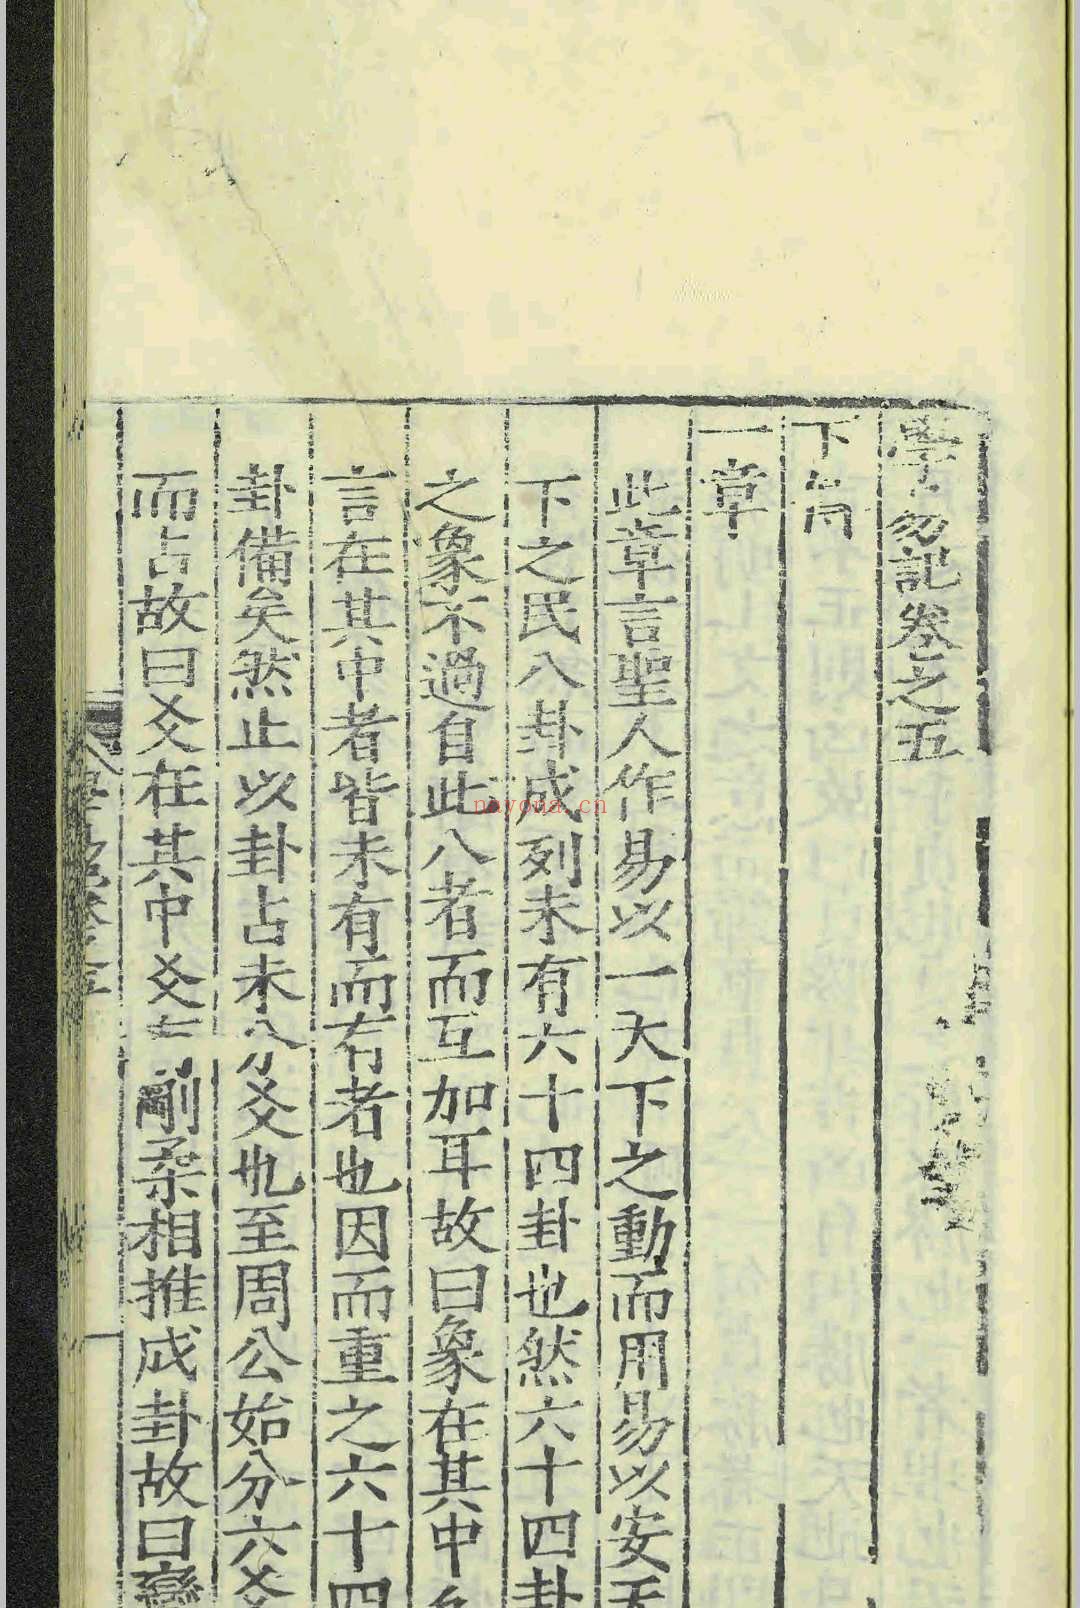 學易記卷之五
下篇
一章
此章言聖人作易以一天下之動而用易以安天
下之民八卦成列未有六十四卦也然六十四卦
之象不過自此八者而互加耳故曰象在其中
言在其中者皆未有而有者也因而重之六十四
卦備矣然止以卦占未分爻也至周公始分六爻
而占故曰爻在其中爻有剛柔相推成卦故曰變
nayona.cn